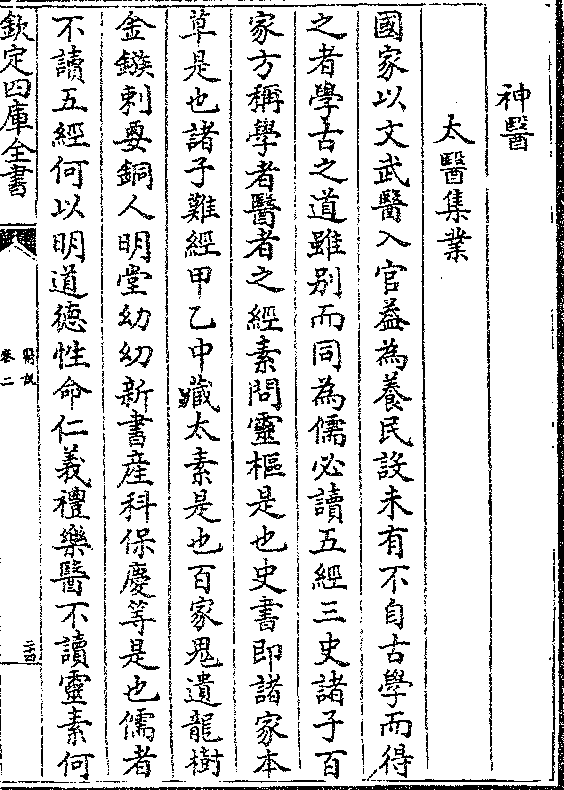 神醫
太醫集業
國家以文武醫入官葢為養民設未有不自古學而得
之者學古之道雖别而同為儒必讀五經三史諸子百
家方稱學者醫者之經素問靈樞是也史書即諸家本
草是也諸子難經甲乙中藏太素是也百家鬼遺龍樹
金鏃刺要銅人明堂幼幼新書産科保慶等是也儒者
不讀五經何以明道德性命仁義禮樂醫不讀靈素何
欽定四庫全書
醫説
卷二
二十四